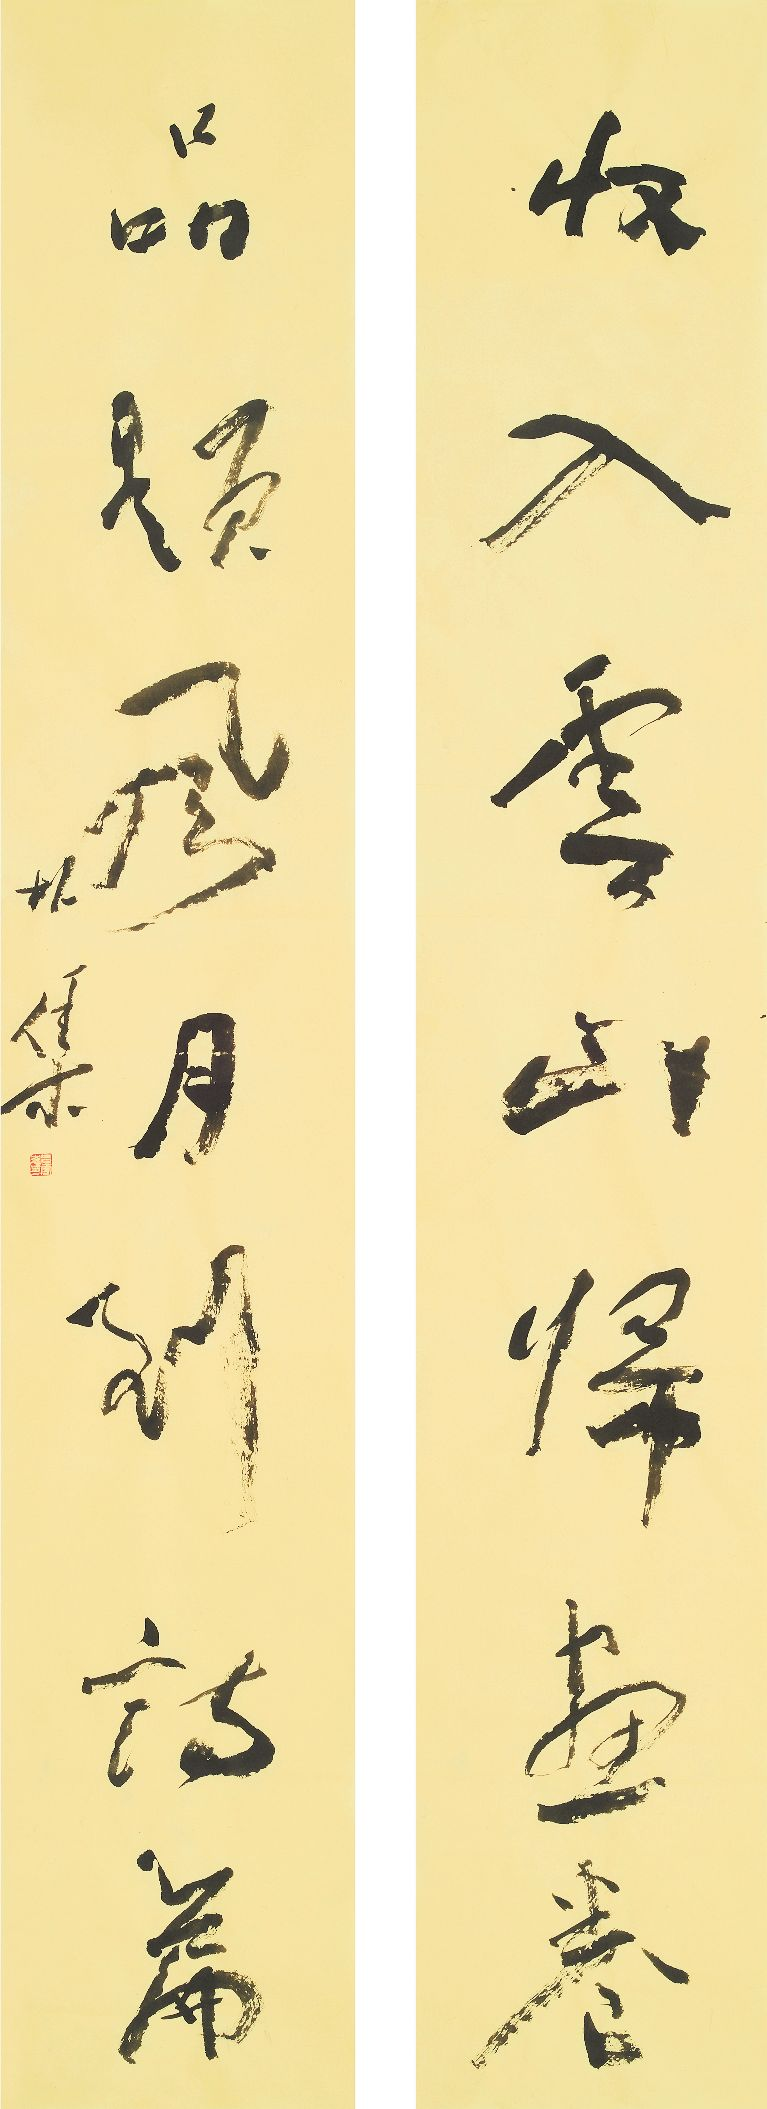 收入雲山歸畫卷
品題風月到詩篇
林集